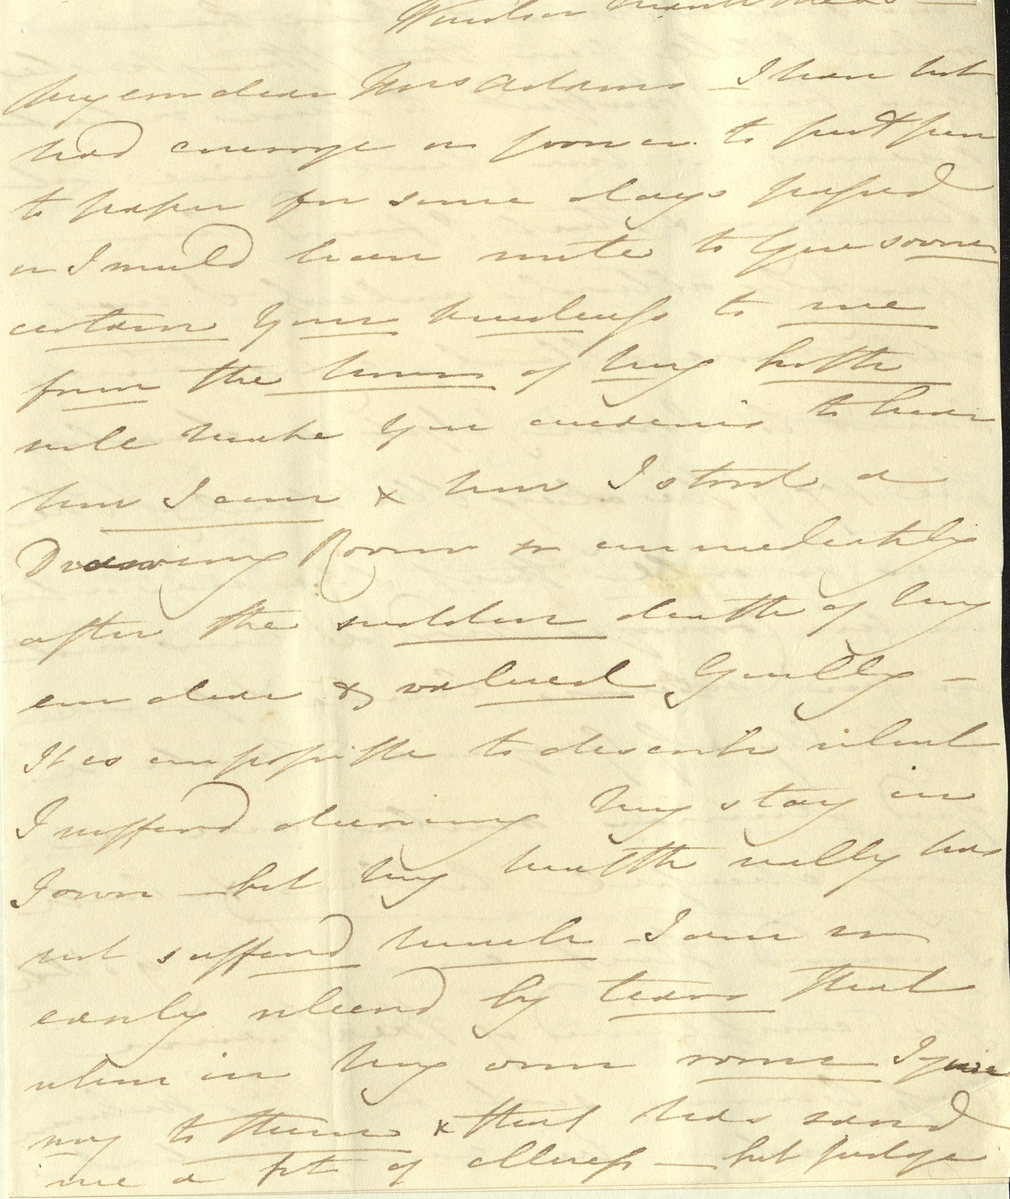 Windsor March
My own dear Mrs Adams – I have not
had courage or power to put pen
to paper for some days passed
or I would have wrote to you sooner
certain your kindness to me
from the hour of my birth
will make you anxious to hear
how I am & how I stood a
Drawing Room so immediately
after the sudden death of my
own dear & valued Goully –
It is impossible to describe what
I suffered during my stay in
Town – but my health really has
not suffered much – I am so
easily relieved by tears that
when in my own room I give
way to them & that has saved
me a fit of illness – but judge